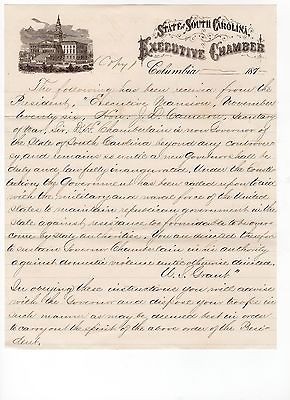 STATE OF SOUTH CAROLINA
EXECUTIVE CHAMBER
(Copy) Columbia 187
The following has been received from the
President, "Executive Mansion, November
twenty six, Hon. J. D. Cameron, Secretary
of War, Sir, D. H. Chamberlain is now Governor of
the State of South Carolina beyond any controver-
sy, and remains so until a new Governor shall be
duly and lawfully inaugurated. Under the Consti-
tution, the Government has been called upon to aid
with the military and naval force of the United
States to maintain republican government in the
State against resistance too formidable to be over-
come by State authorities. You are directed therefore
to sustain Governor Chamberlain in his authority
against domestic violence until otherwise directed.
U. S. Grant"
In obeying these instructions you will advise
with the Governor and dispose your troops in
such manner as may be deemed best in order
to carry out the spirit of the above order of the Presi-
dent.